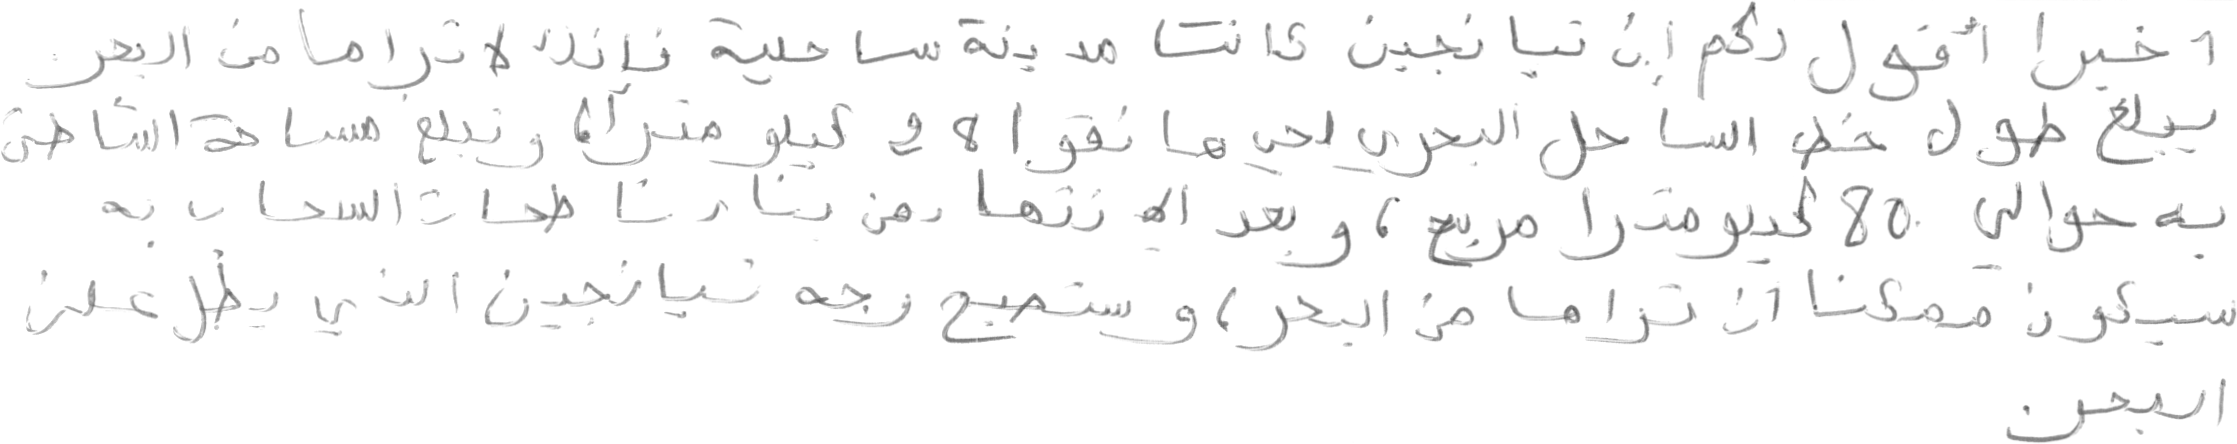 أخيرا أقول لكم إن تيانجين كانت مدينة ساحلية فإنك لا تراها من البحر.
يبلغ طول خط الساحل البحري لحي هانقوا 28 كيلو مترآ، وتبلغ مساحة الشاطئ
به حوالي 80 كيلو مترا مربع، وبعد الانتهاء من بناء ناطحات السحاب به
سيكون ممكنا أن تراها من البحر، وستصبح وجه تيانجين الذي يطل على
البحر.